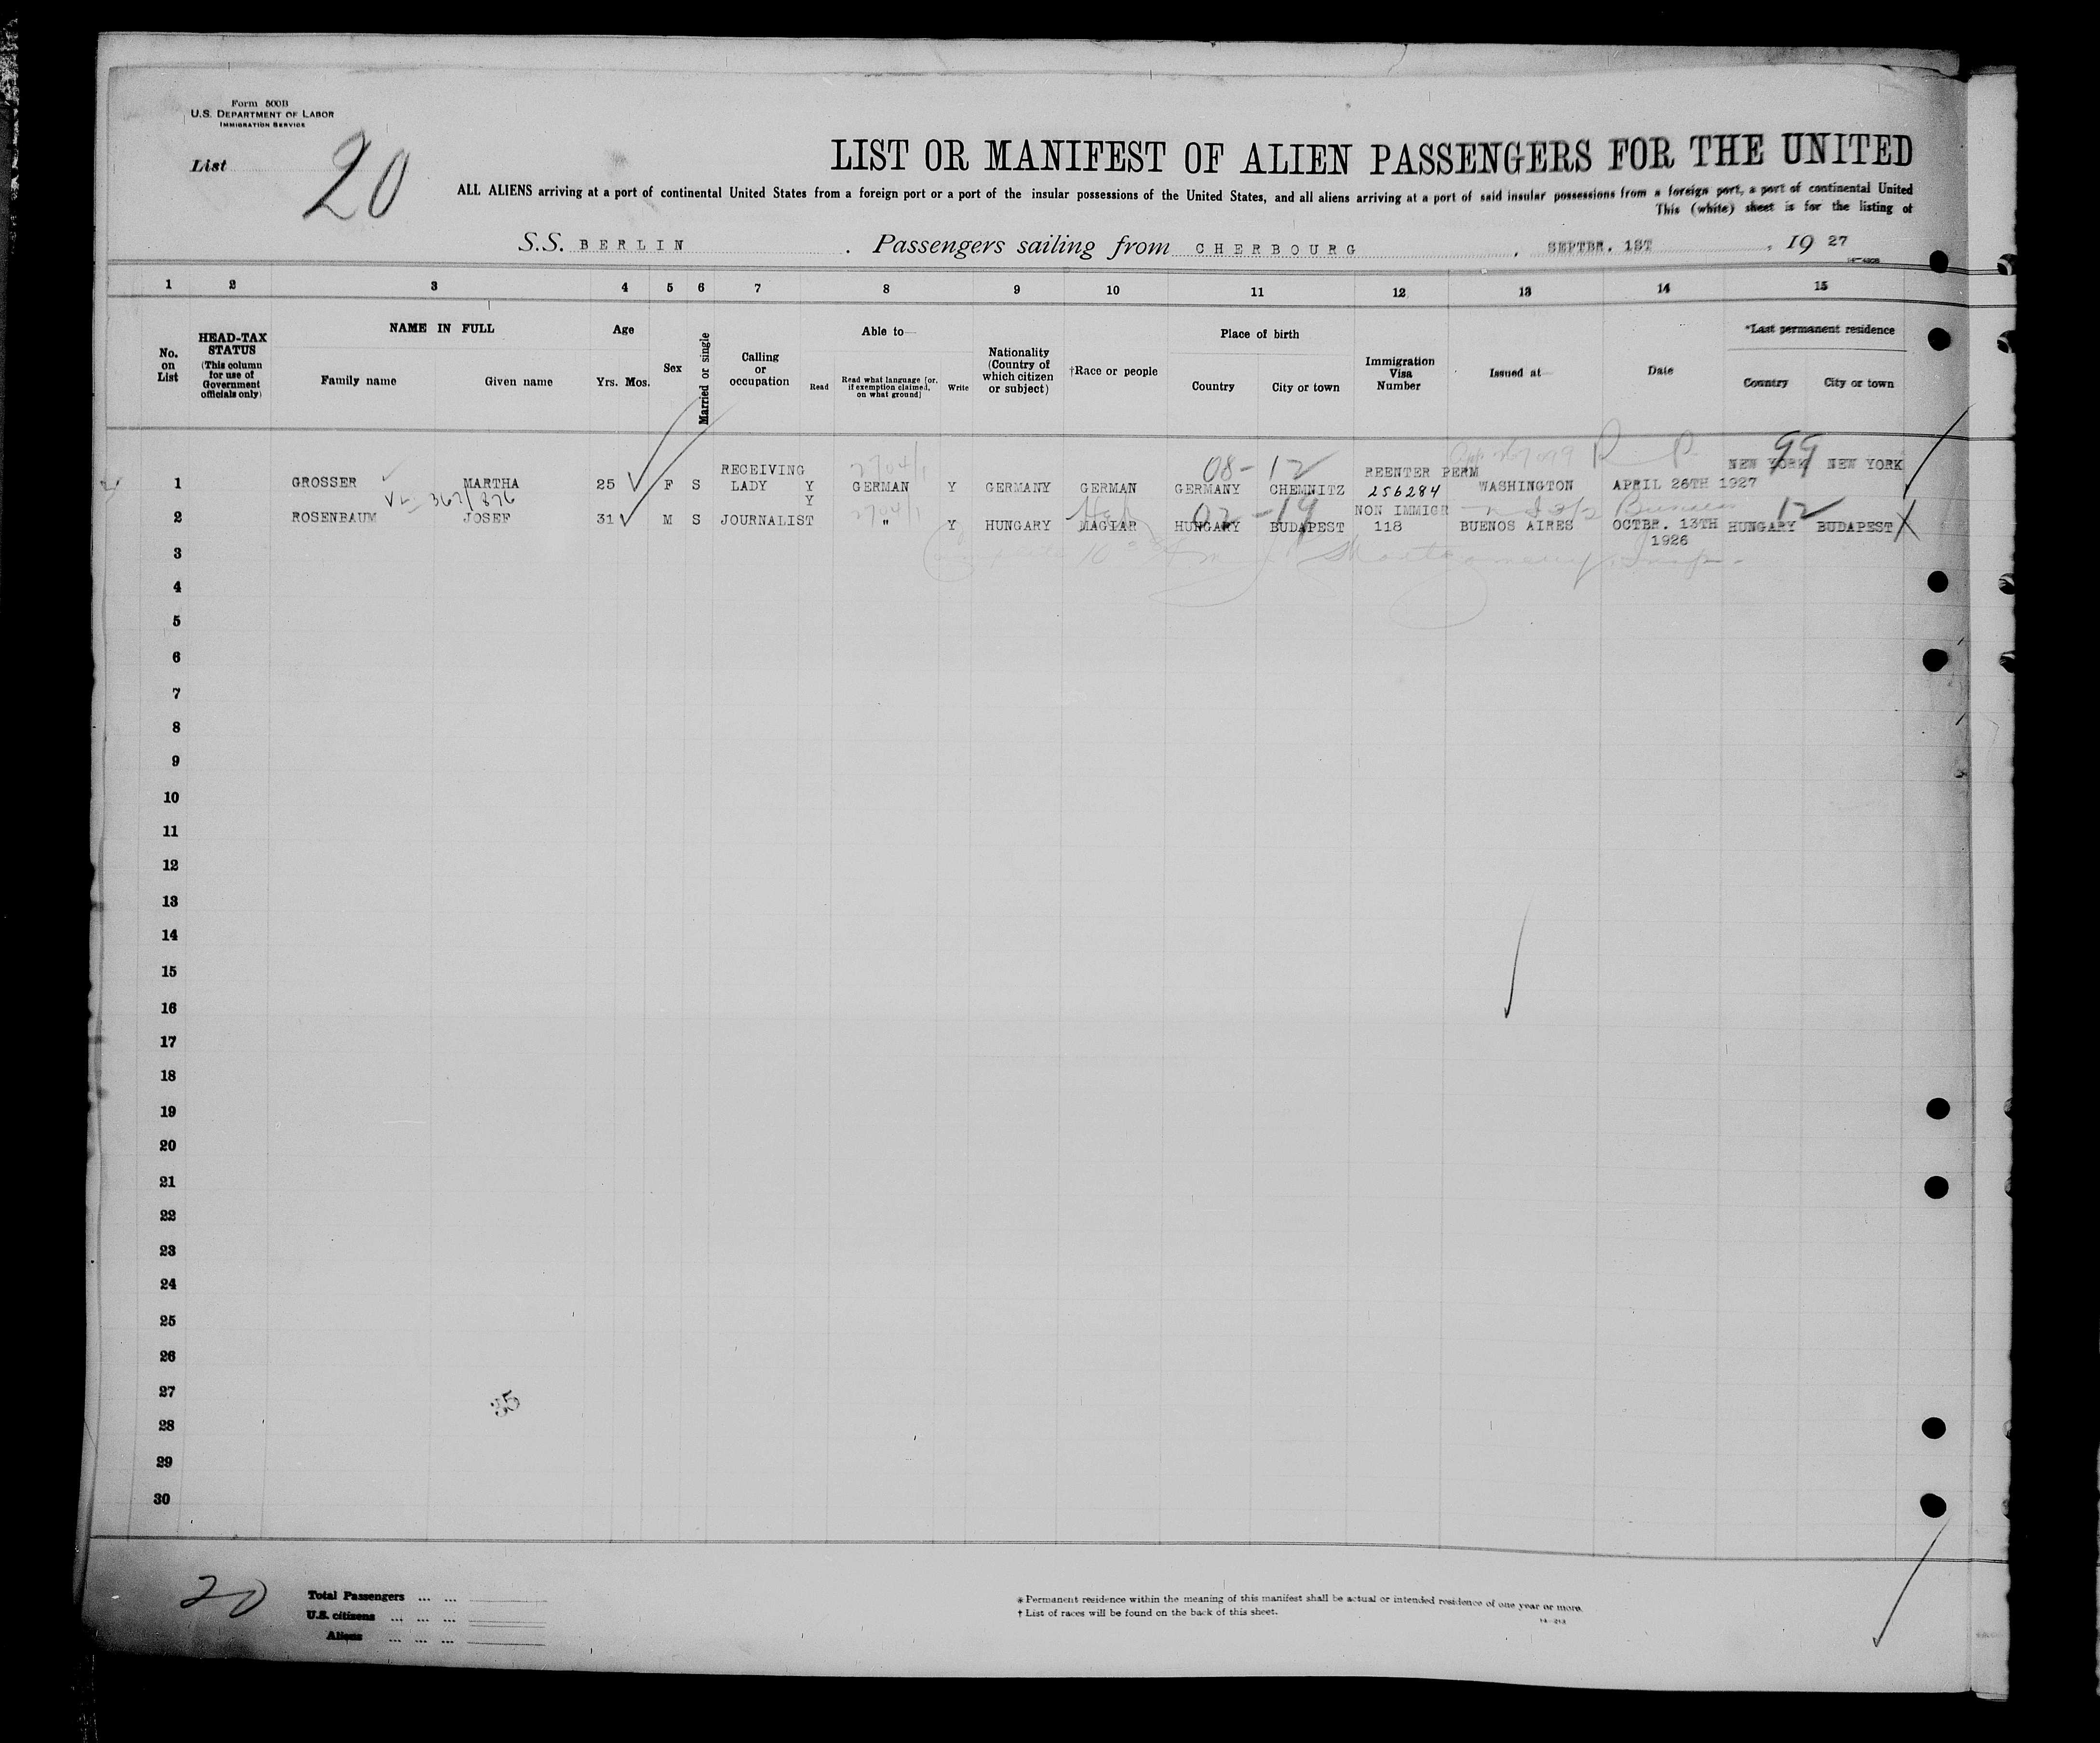 Form 500B
U.S. DEPARTMENT OF LABOR
IMMIGRATION SERVICE
List 20
LIST OR MANIFEST OF ALIEN PASSENGERS FOR THE UNITED
ALL ALIENS arriving at a port of continental United States from a foreign port or a port of the insular possessions of the United States, and all aliens arriving at a port of said insular possessions from a foreign port, a port of continental United
This (white) sheet is for the listing of
S.S. BERLIN . Passengers sailing from CHERBOURG , SEPTBR. 1ST , 19 27
1 2 3 4 5 6 7 8 9 10 11 12 13 14 15
No. on List
HEAD-TAX STATUS (This column for use of Government officials only)
NAME IN FULL
Family name Given name
Age
Yrs. Mos.
Sex
Married or single
Calling or occupation
Able to—
Read
Read what language [or, if exemption claimed, on what ground]
Write
Nationality (Country of which citizen or subject)
†Race or people
Place of birth
Country City or town
Immigration Visa Number
Issued at—
Date
*Last permanent residence
Country City or town
08-12 99
1 GROSSER MARTHA 25 F S RECEIVING LADY Y GERMAN Y GERMANY GERMAN GERMANY CHEMNITZ REENTER PERM 256284 WASHINGTON APRIL 26TH 1927 NEW YORK NEW YORK
367/876
02-19 12
2 ROSENBAUM JOSEF 31 M S JOURNALIST Y " Y HUNGARY MAGIAR HUNGARY BUDAPEST NON IMMIGR 118 BUENOS AIRES OCTBR. 13TH 1926 HUNGARY BUDAPEST
3
4
5
6
7
8
9
10
11
12
13
14
15
16
17
18
19
20
21
22
23
24
25
26
27
35
28
29
30
20
Total Passengers ... ...
U.S. citizens ... ... ...
Aliens ... ... ...
* Permanent residence within the meaning of this manifest shall be actual or intended residence of one year or more.
† List of races will be found on the back of this sheet.